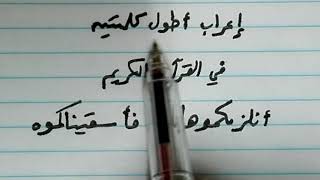 إعراب أطول كلمتين
في القرآن الكريم
أنلزمكموها فأسقيناكموه